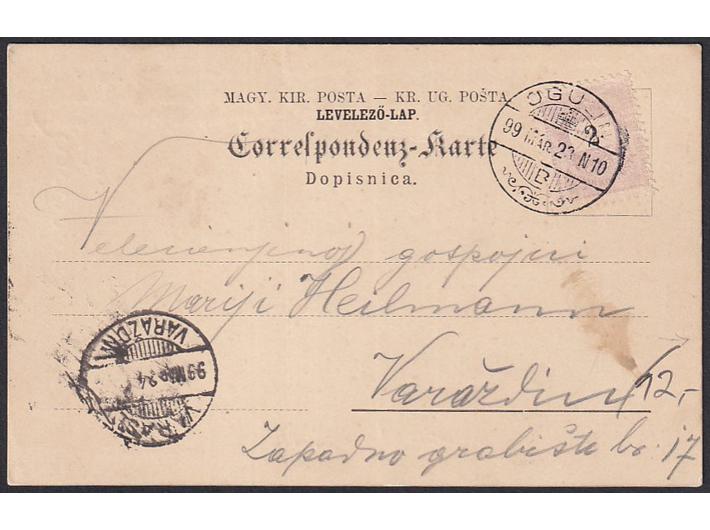 MAGY. KIR. POSTA — KR. UG. POŠTA
LEVELEZŐ-LAP.
Correspondenz-Karte
Dopisnica.
OGULIN
99 MÁR. 23 N10
B
gospojici
Mariji Heilmann
Varaždin
12,-
Zapadno grabište br. 17
VARAŽDIN
99 MÁR 24
VARASD